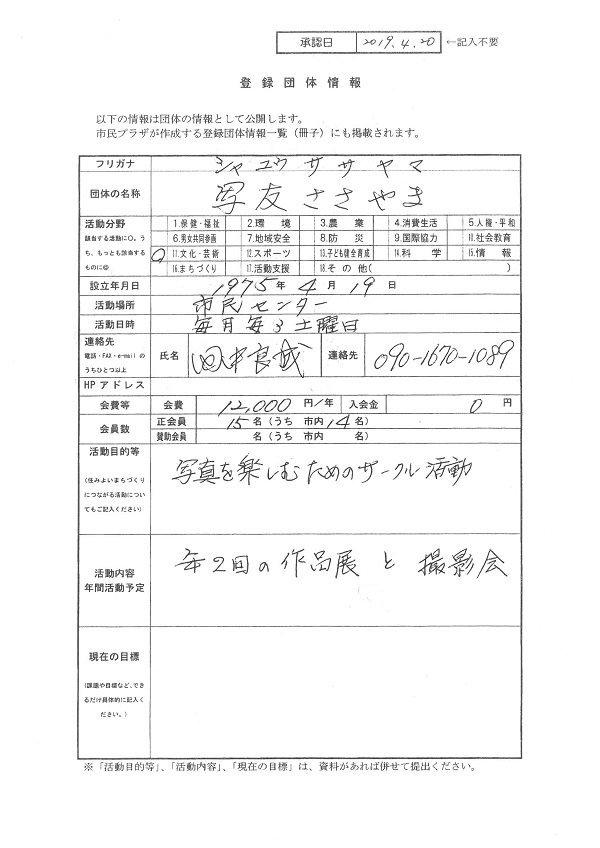 承認日 2019.4.20 ←記入不要
登録団体情報
以下の情報は団体の情報として公開します。
市民プラザが作成する登録団体情報一覧（冊子）にも掲載されます。
フリガナ シャユウ ササヤマ
団体の名称 写友ささやま
活動分野
該当する活動に○。う
ち、もっとも該当する
ものに◎
1.保健・福祉 2.環境 3.農業 4.消費生活 5.人権・平和
6.男女共同参画 7.地域安全 8.防災 9.国際協力 10.社会教育
11.文化・芸術 12.スポーツ 13.子ども健全育成 14.科学 15.情報
16.まちづくり 17.活動支援 18.その他( )
設立年月日 1975年4月19日
活動場所 市民センター
活動日時 毎月毎3土曜日
連絡先
電話・FAX・e-mailの
うちひとつ以上
氏名 田中良
連絡先 090-1670-1089
HPアドレス
会費等 会費 12,000 円/年 入会金 0 円
会員数 正会員 15名（うち 市内 14名）
賛助会員 名（うち 市内 名）
活動目的等
(住みよいまちづくり
につながる活動につい
てもご記入ください)
写真を楽しむためのサークル活動
活動内容
年間活動予定
年2回の作品展と撮影会
現在の目標
(課題や目標など、でき
るだけ具体的に記入く
ださい。)
※「活動目的等」、「活動内容」、「現在の目標」は、資料があれば併せて提出ください。